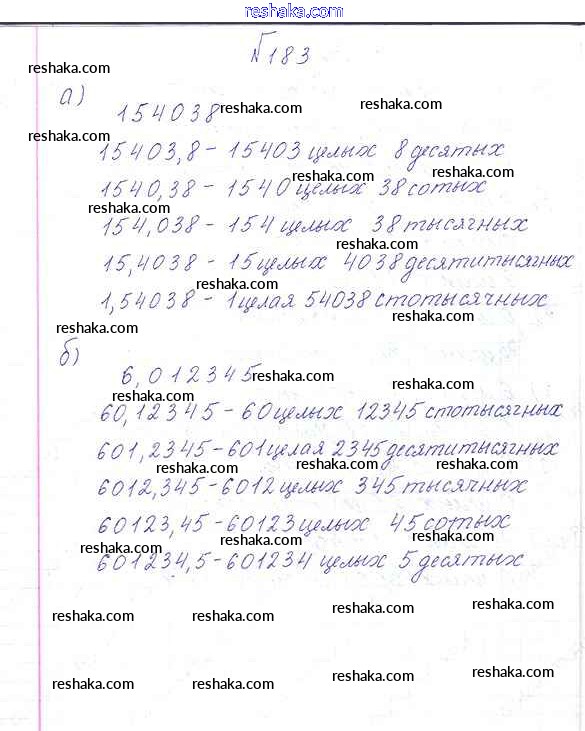 reshaka.com
№183
reshaka.com
а)
154038 reshaka.com reshaka.com
reshaka.com
15403,8 - 15403 целых 8 десятых
reshaka.com reshaka.com
1540,38 - 1540 целых 38 сотых
reshaka.com
154,038 - 154 целых 38 тысячных
reshaka.com
15,4038 - 15 целых 4038 десятитысячных
reshaka.com
1,54038 - 1 целая 54038 стотысячных
reshaka.com
reshaka.com
б)
6,012345 reshaka.com
reshaka.com reshaka.com
60,12345 - 60 целых 12345 стотысячных
601,2345 - 601 целая 2345 десятитысячных
reshaka.com reshaka.com reshaka.com
6012,345 - 6012 целых 345 тысячных
60123,45 - 60123 целых 45 сотых
reshaka.com reshaka.com reshaka.com
601234,5 - 601234 целых 5 десятых
reshaka.com reshaka.com reshaka.com reshaka.com
reshaka.com reshaka.com reshaka.com reshaka.com